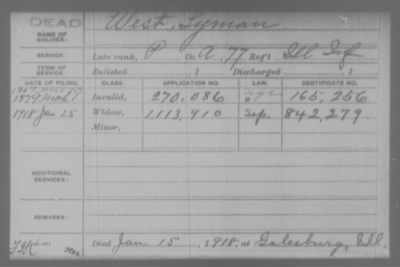 DEAD
West, Lyman
NAME OF SOLDIER:
SERVICE: Late rank, P Co. A, 77 Reg't Ill Inf
TERM OF SERVICE: Enlisted , 1 Discharged , 1
DATE OF FILING. CLASS. APPLICATION NO. LAW. CERTIFICATE NO.
1879 Invalid, 270,086 165,256
1918 Jan 25 Widow, 1,113,910 Sep. 842,279
Minor,
ADDITIONAL SERVICES:
REMARKS:
Died Jan 15, 1918, at Galesburg, Ill.